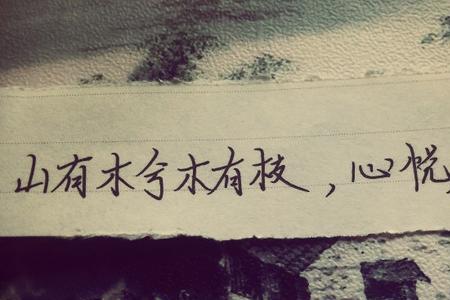 山有木兮木有枝，心悦